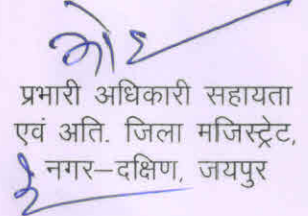 प्रभारी अधिकारी सहायता
एवं अति. जिला मजिस्ट्रेट,
नगर–दक्षिण, जयपुर